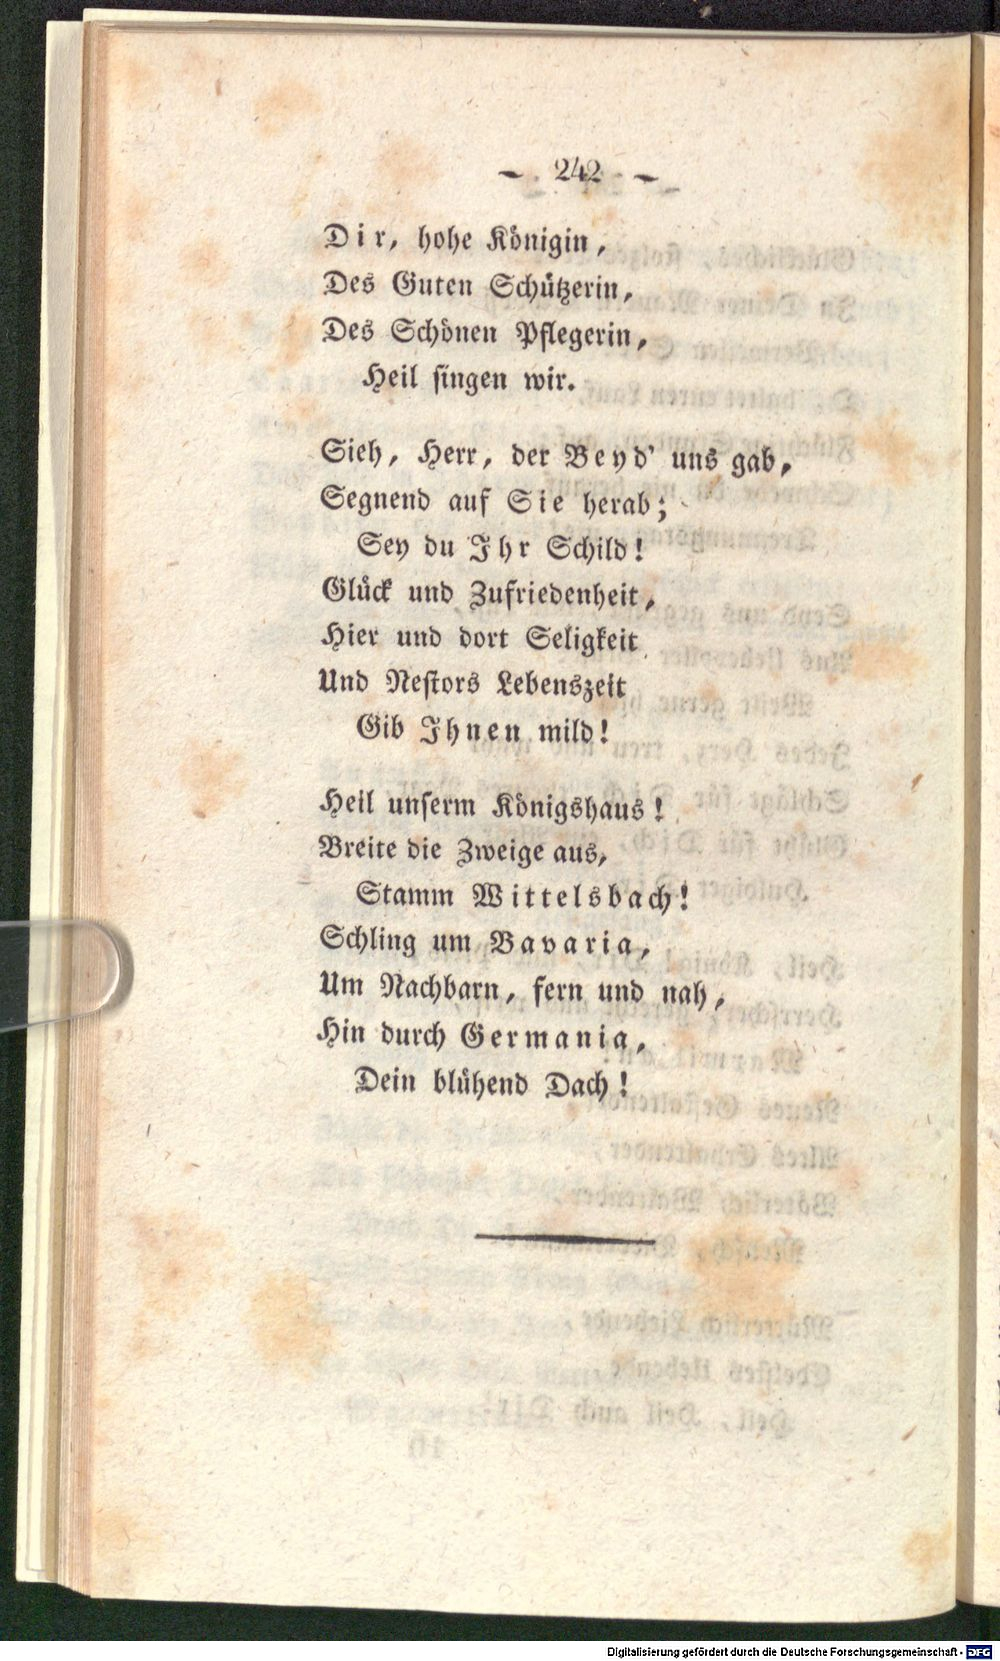 - 242 -
Dir, hohe Königin,
Des Guten Schützerin,
Des Schönen Pflegerin,
Heil singen wir.
Sieh, Herr, der Beyd' uns gab,
Segnend auf Sie herab;
Sey du Ihr Schild!
Glück und Zufriedenheit,
Hier und dort Seligkeit
Und Nestors Lebenszeit
Gib Ihnen mild!
Heil unserm Königshaus!
Breite die Zweige aus,
Stamm Wittelsbach!
Schling um Bavaria,
Um Nachbarn, fern und nah,
Hin durch Germania,
Dein blühend Dach!
Digitalisierung gefördert durch die Deutsche Forschungsgemeinschaft - DFG